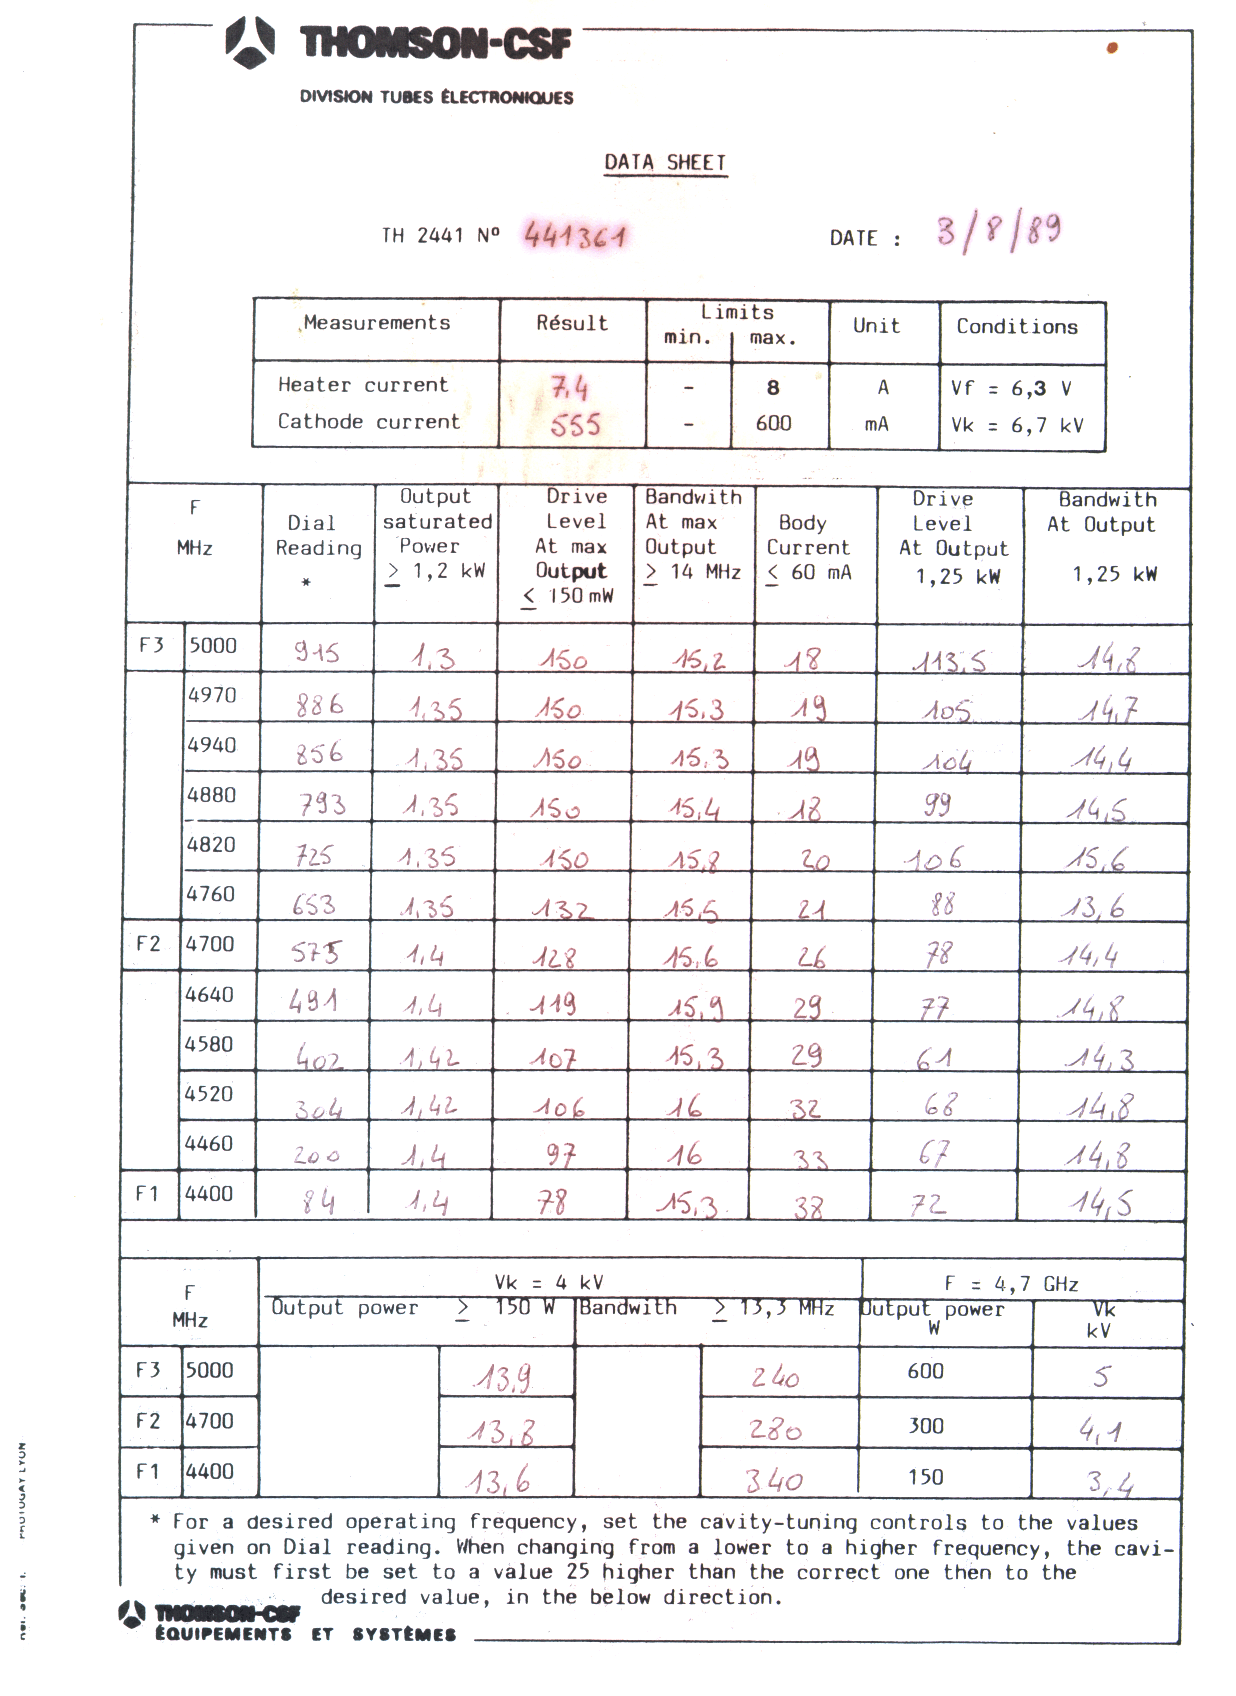 THOMSON-CSF
DIVISION TUBES ÉLECTRONIQUES
DATA SHEET
TH 2441 Nº 441361 DATE : 3/8/89
Measurements Résult Limits min. max. Unit Conditions
Heater current 7,4 - 8 A Vf = 6,3 V
Cathode current 555 - 600 mA Vk = 6,7 kV
F Output Drive Bandwith Drive Bandwith
Dial saturated Level At max Body Level At Output
MHz Reading Power At max Output Current At Output
* ≥ 1,2 kW Output ≥ 14 MHz ≤ 60 mA 1,25 kW 1,25 kW
≤ 150 mW
F3 5000 915 1,3 150 15,2 18 113,5 14,8
4970 886 1,35 150 15,3 19 105 14,7
4940 856 1,35 150 15,3 19 104 14,4
4880 793 1,35 150 15,4 18 99 14,5
4820 725 1,35 150 15,8 20 106 15,6
4760 653 1,35 132 15,5 21 88 13,6
F2 4700 575 1,4 128 15,6 26 78 14,4
4640 491 1,4 119 15,9 29 77 14,8
4580 402 1,42 107 15,3 29 61 14,3
4520 304 1,42 106 16 32 68 14,8
4460 200 1,4 97 16 33 67 14,8
F1 4400 84 1,4 78 15,3 38 72 14,5
F Vk = 4 kV F = 4,7 GHz
MHz Output power ≥ 150 W Bandwith ≥ 13,3 MHz Output power Vk
W kV
F3 5000 13,9 240 600 5
F2 4700 13,8 280 300 4,1
F1 4400 13,6 340 150 3,4
* For a desired operating frequency, set the cavity-tuning controls to the values
given on Dial reading. When changing from a lower to a higher frequency, the cavi-
ty must first be set to a value 25 higher than the correct one then to the
desired value, in the below direction.
THOMSON-CSF
ÉQUIPEMENTS ET SYSTÈMES
LYON